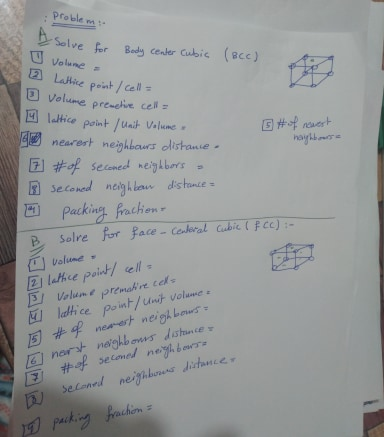 : Problem :-
A Solve for Body center Cubic (BCC)
1 Volume =
2 Lattice point / cell =
3 Volume premetive cell =
4 lattice point / Unit Volume =
5 # of nearest neighbours =
6 nearest neighbours distance =
7 # of seconed neighbors =
8 seconed neighbour distance =
9 packing fraction =
B Solve for face - Centeral Cubic (fCC) :-
1 Volume =
2 lattice point / cell =
3 Volume premetive cell =
4 lattice point / Unit volume =
5 # of nearest neighbours =
6 nearst neighbours distance =
7 # of seconed neighbours =
8 seconed neighbours distance =
9 packing fraction =